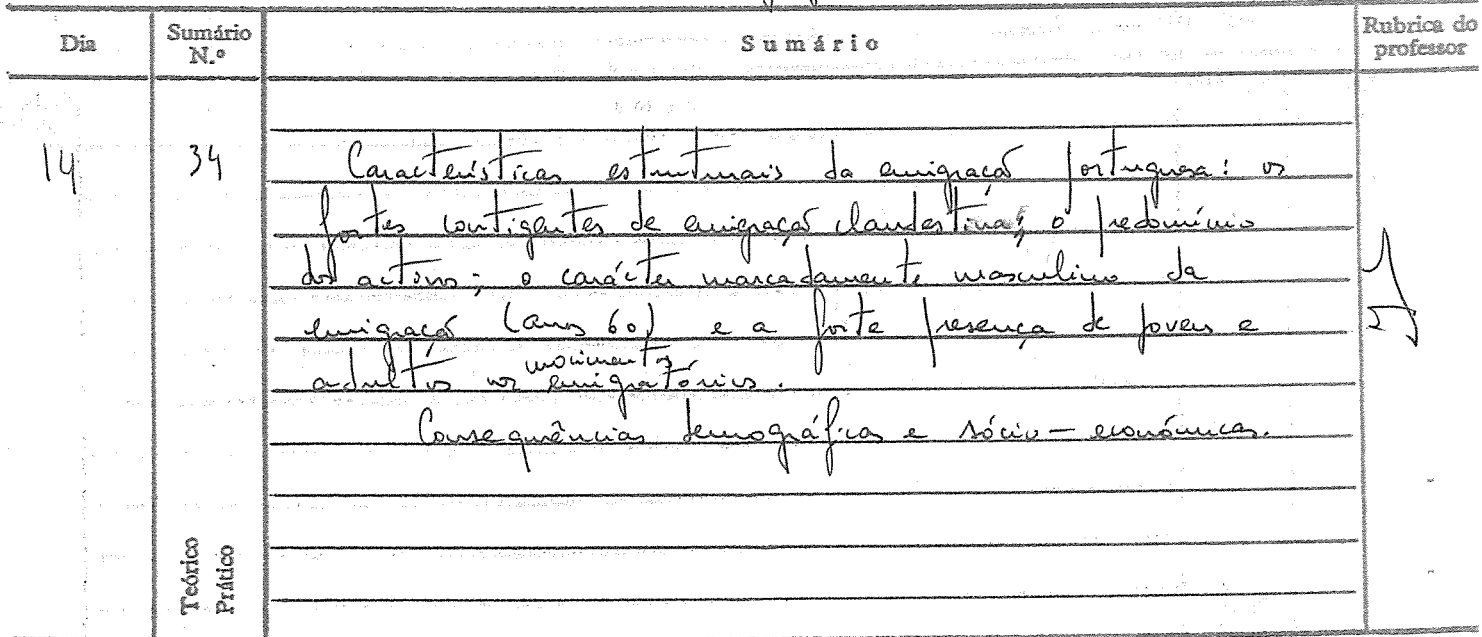 Dia
Sumário N.º
Sumário
Rubrica do professor
14
34
Características estruturais da emigração portuguesa: os
fortes contigentes de emigração clandestina; o predomínio
dos activos; o carácter marcadamente masculino da
emigração (anos 60) e a forte presença de jovens e
adultos nos movimentos emigratórios.
Consequências demográficas e sócio-económicas.
Teórico
Prático